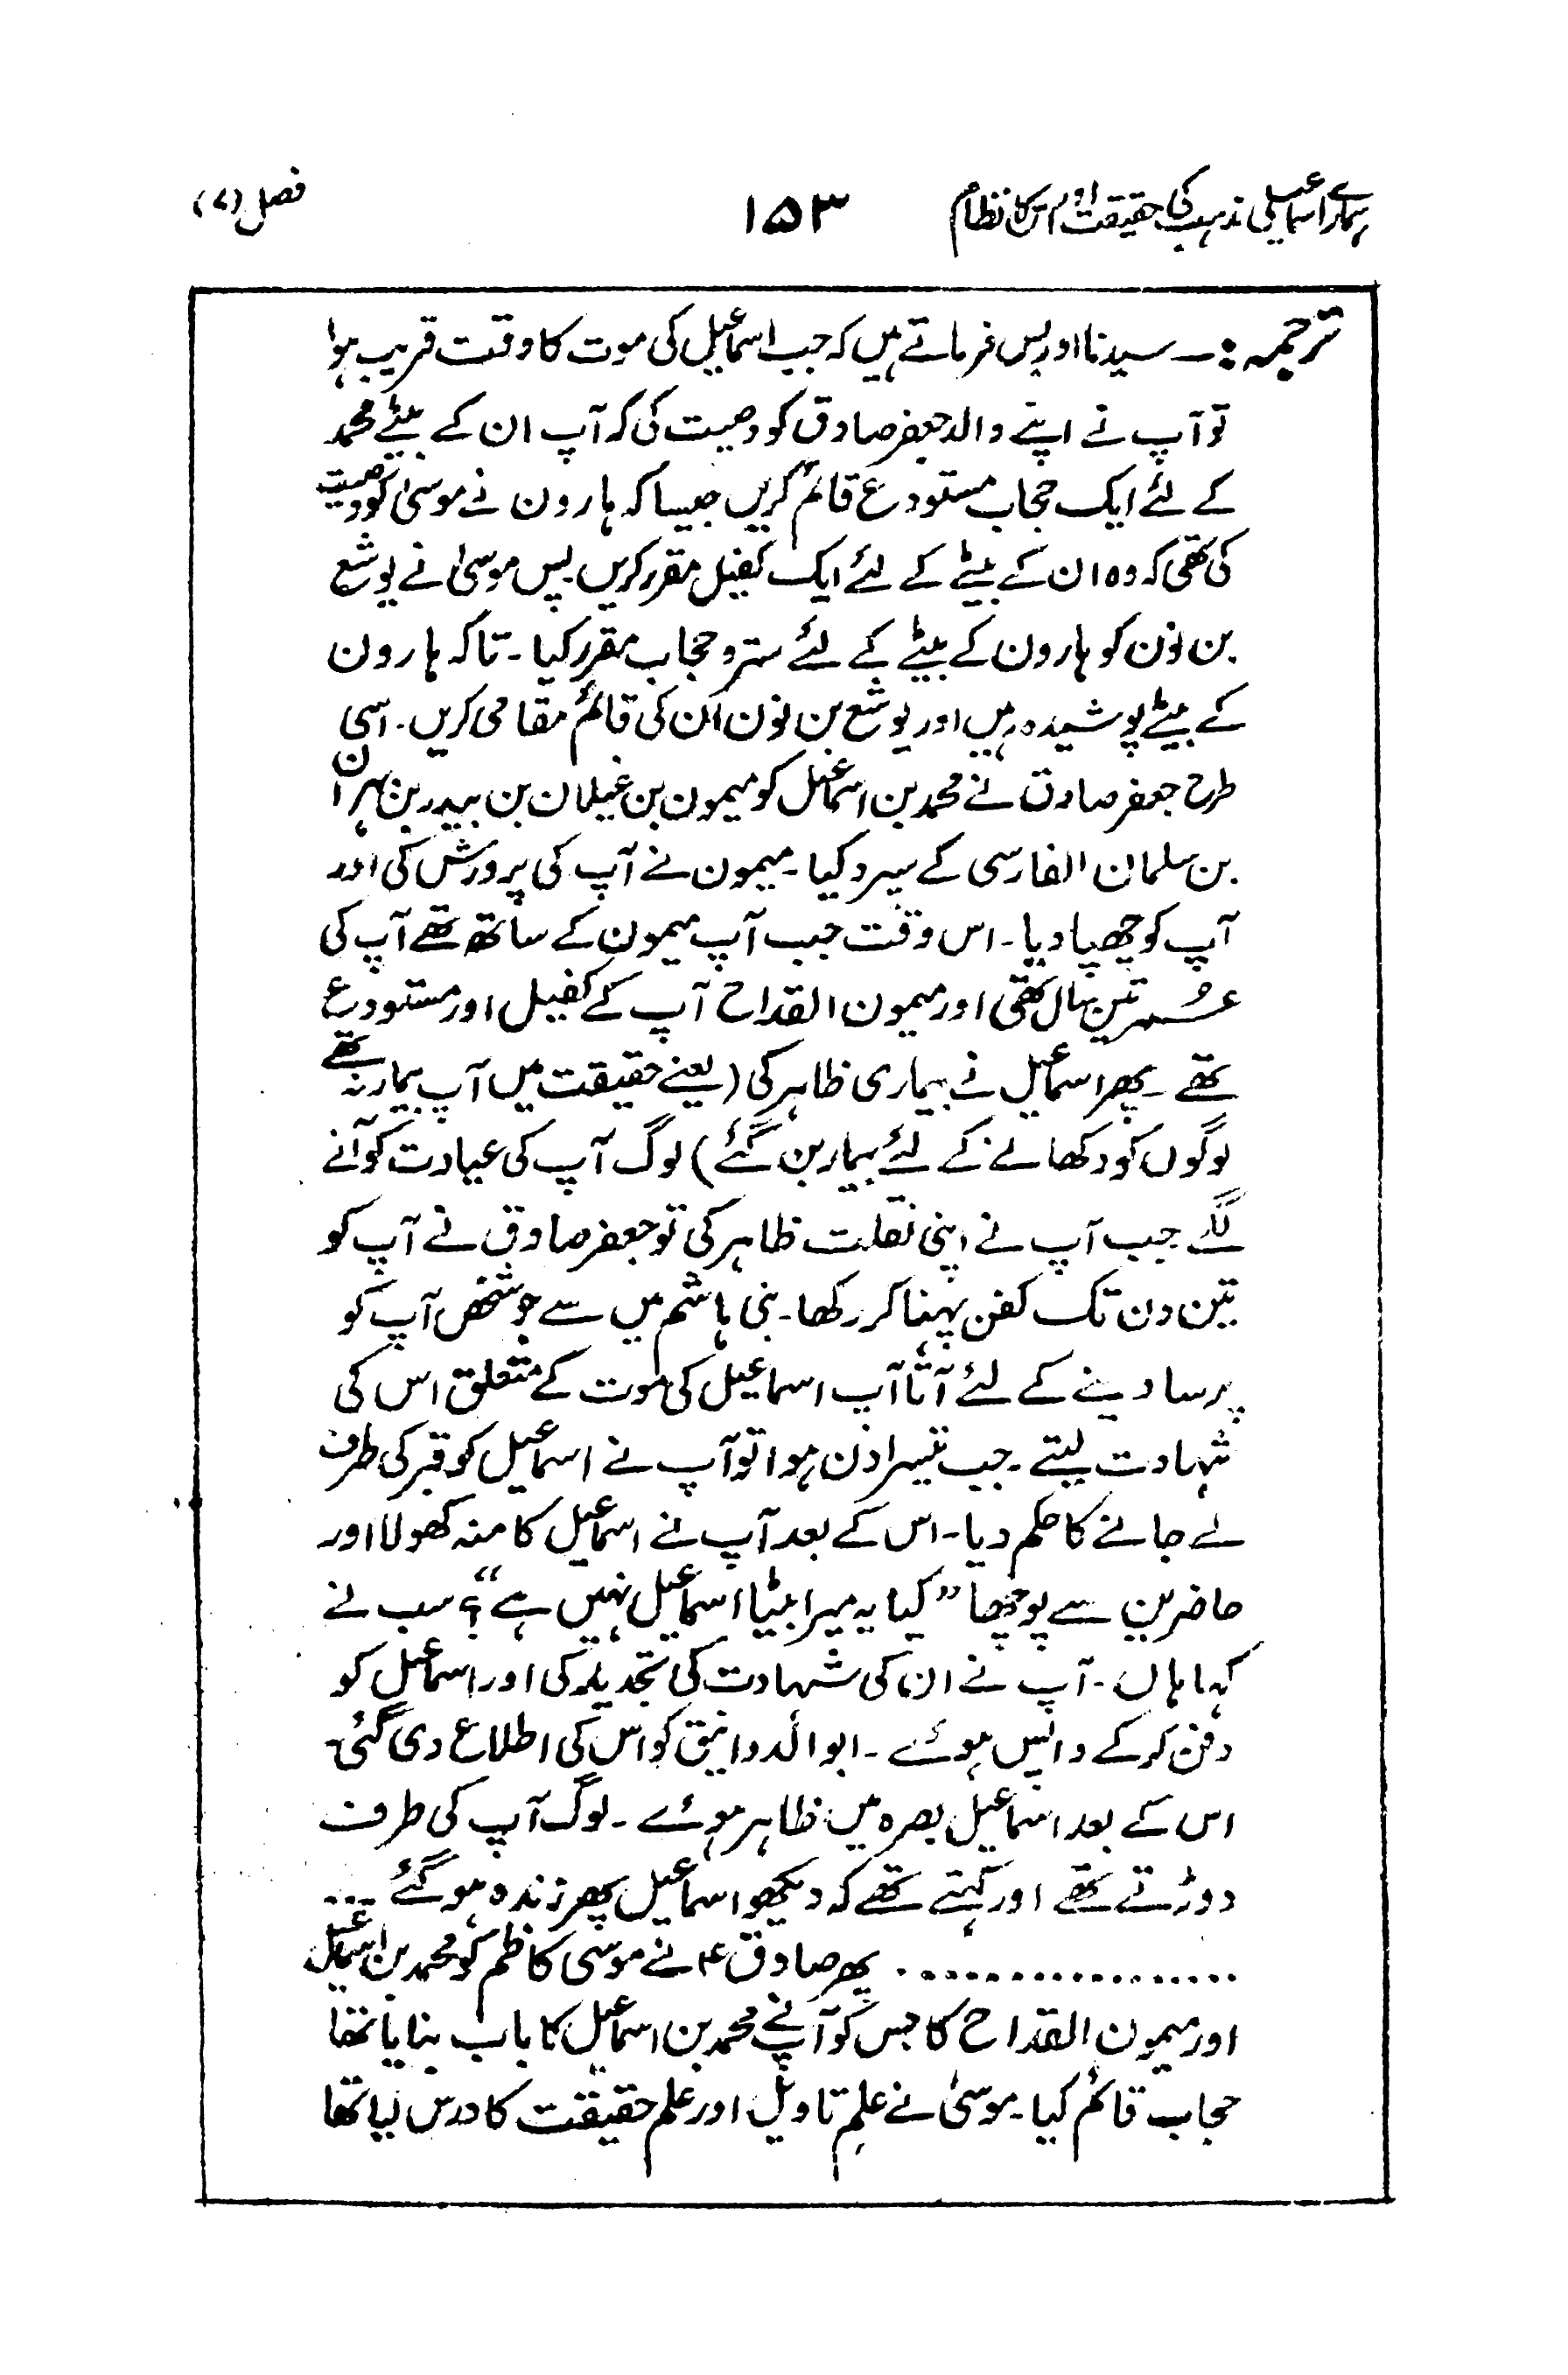 ہمارے اسماعیلی مذہب کی حقیقت اور اس کا نظام ۱۵۳ فصل (۷)
ترجمہ :۔ سیدنا ادریس فرماتے ہیں کہ جب اسماعیل کی موت کا وقت قریب ہوا
تو آپ نے اپنے والد جعفر صادق کو وصیت کی کہ آپ ان کے بیٹے محمد
کے لئے ایک حجاب مستودع قائم کریں جیسا کہ ہارون نے موسیٰ کو وصیت
کی تھی کہ وہ ان کے بیٹے کے لئے ایک کفیل مقرر کریں پس موسیٰ نے یوشع
بن نون کو ہارون کے بیٹے کے لئے ستر و حجاب مقرر کیا۔ تاکہ ہارون
کے بیٹے پوشیدہ رہیں اور یوشع بن نون اُن کی قائم مقامی کریں۔ اسی
طرح جعفر صادق نے محمد بن اسماعیل کو میمون بن غیلان بن بیدر بن مہران
بن سلمان الفارسی کے سپرد کیا۔ میمون نے آپ کی پرورش کی اور
آپ کو چھپا دیا۔ اس وقت جب آپ میمون کے ساتھ تھے آپ کی
عُمر تین سال تھی اور میمون القداح آپ کے کفیل اور مستودع
تھے۔ پھر اسماعیل نے بیماری ظاہر کی (یعنے حقیقت میں آپ بیمار نہ تھے
لوگوں کو دکھانے کے لئے بیمار بن گئے) لوگ آپ کی عیادت کو آنے
لگے جب آپ نے اپنی نقلت ظاہر کی تو جعفر صادق نے آپ کو
تین دن تک کفن پہنا کر رکھا۔ بنی ہاشم میں سے جو شخص آپ کو
پرسا دینے کے لئے آتا آپ اسماعیل کی موت کے متعلق اس کی
شہادت لیتے۔ جب تیسرا دن ہوا تو آپ نے اسماعیل کو قبر کی طرف
لے جانے کا حکم دیا۔ اس کے بعد آپ نے اسماعیل کا منہ کھولا اور
حاضرین سے پوچھا ”کیا یہ میرا بیٹا اسماعیل نہیں ہے“؟ سب نے
کہا ہاں۔ آپ نے ان کی شہادت کی تجدید کی اور اسماعیل کو
دفن کر کے واپس ہوئے۔ ابو الدوانیق کو اس کی اطلاع دی گئی۔
اس کے بعد اسماعیل بصرہ میں ظاہر ہوئے۔ لوگ آپ کی طرف
دوڑتے تھے اور کہتے تھے کہ دیکھو اسماعیل پھر زندہ ہو گئے ...
................. پھر صادق ع نے موسی کاظم کو محمد بن اسماعیل
اور میمون القداح کا جس کو آپ نے محمد بن اسماعیل کا باب بنایا تھا
حجاب قائم کیا۔ موسیٰ نے علمِ تاویل اور علم حقیقت کا درس لیا تھا